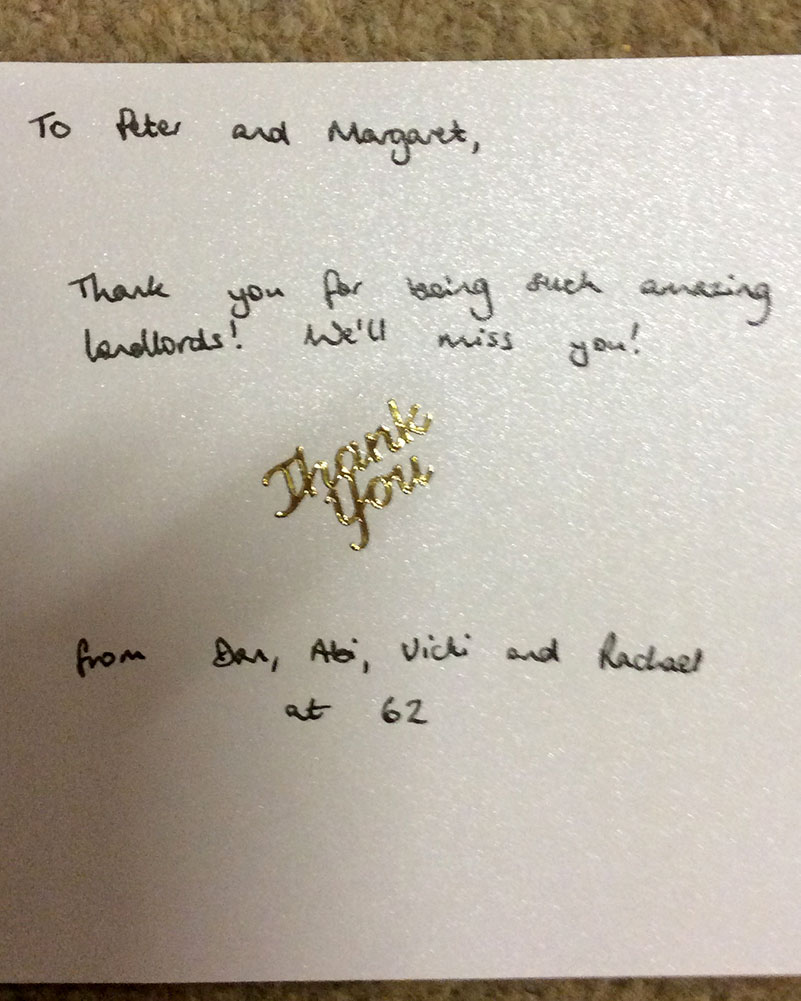 To Peter and Margaret,
Thank you for being such amazing
landlords! We'll miss you!
Thank
You
from Dan, Abi, Vicki and Rachael
at 62